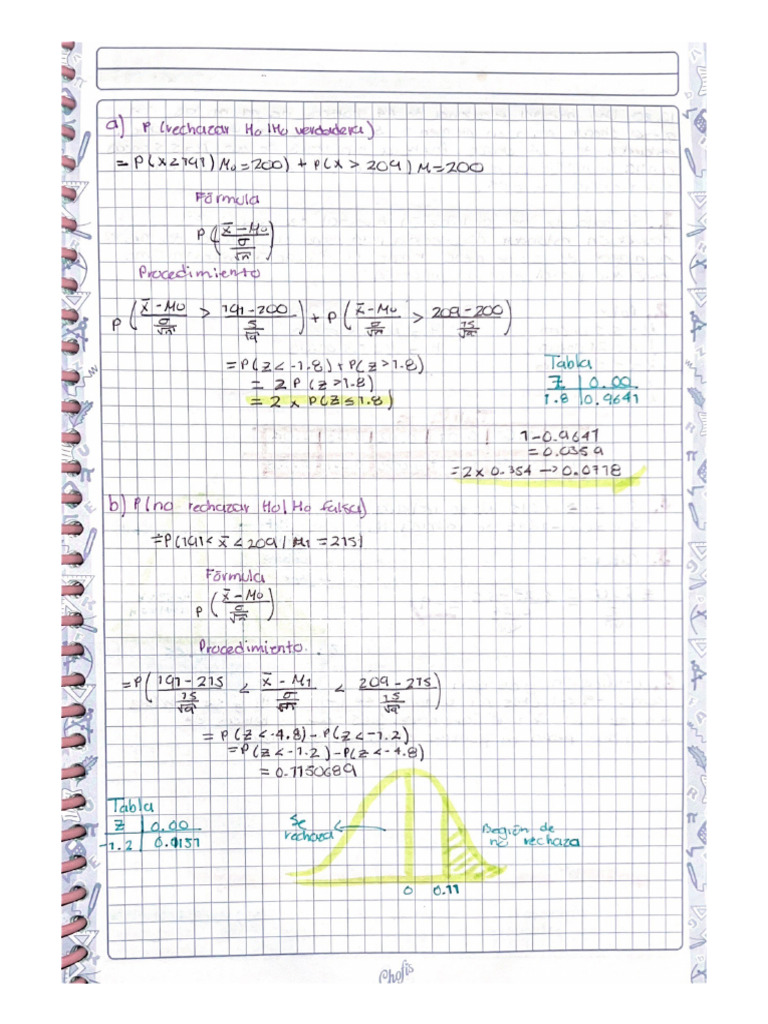 a) P (rechazar Ho | Ho verdadera)
= P(x < 191) M₀=200) + P(x > 209) M=200
Fórmula
P( (x̄ - M₀) / (σ/√n) )
Procedimiento
P( (x̄ - M₀) / (σ/√n) > (191-200) / (5/√9) ) + P( (x̄ - M₀) / (σ/√n) > (209-200) / (15/√9) )
= P(Z < -1.8) + P(Z > 1.8)
= 2 P (Z > 1.8)
= 2 x P(Z ≤ 1.8)
Tabla
Z | 0.00
1.8 | 0.9641
1-0.9641
= 0.0359
= 2 x 0.354 → 0.0718
b) P(no rechazar Ho | Ho falsa)
= P(191 < x̄ < 209 / M₁ = 215)
Fórmula
P( (x̄ - M₀) / (σ/√n) )
Procedimiento.
= P( (191-215) / (15/√9) < (x̄ - M₁) / (σ/√n) < (209-215) / (15/√9) )
= P(Z < -4.8) - P(Z < -1.2)
= P(Z < -1.2) - P(Z < -4.8)
= 0.1150689
Tabla
Z | 0.00
-1.2 | 0.1151
Se
rechaza
Región de
no rechaza
0 0.11
Chofis